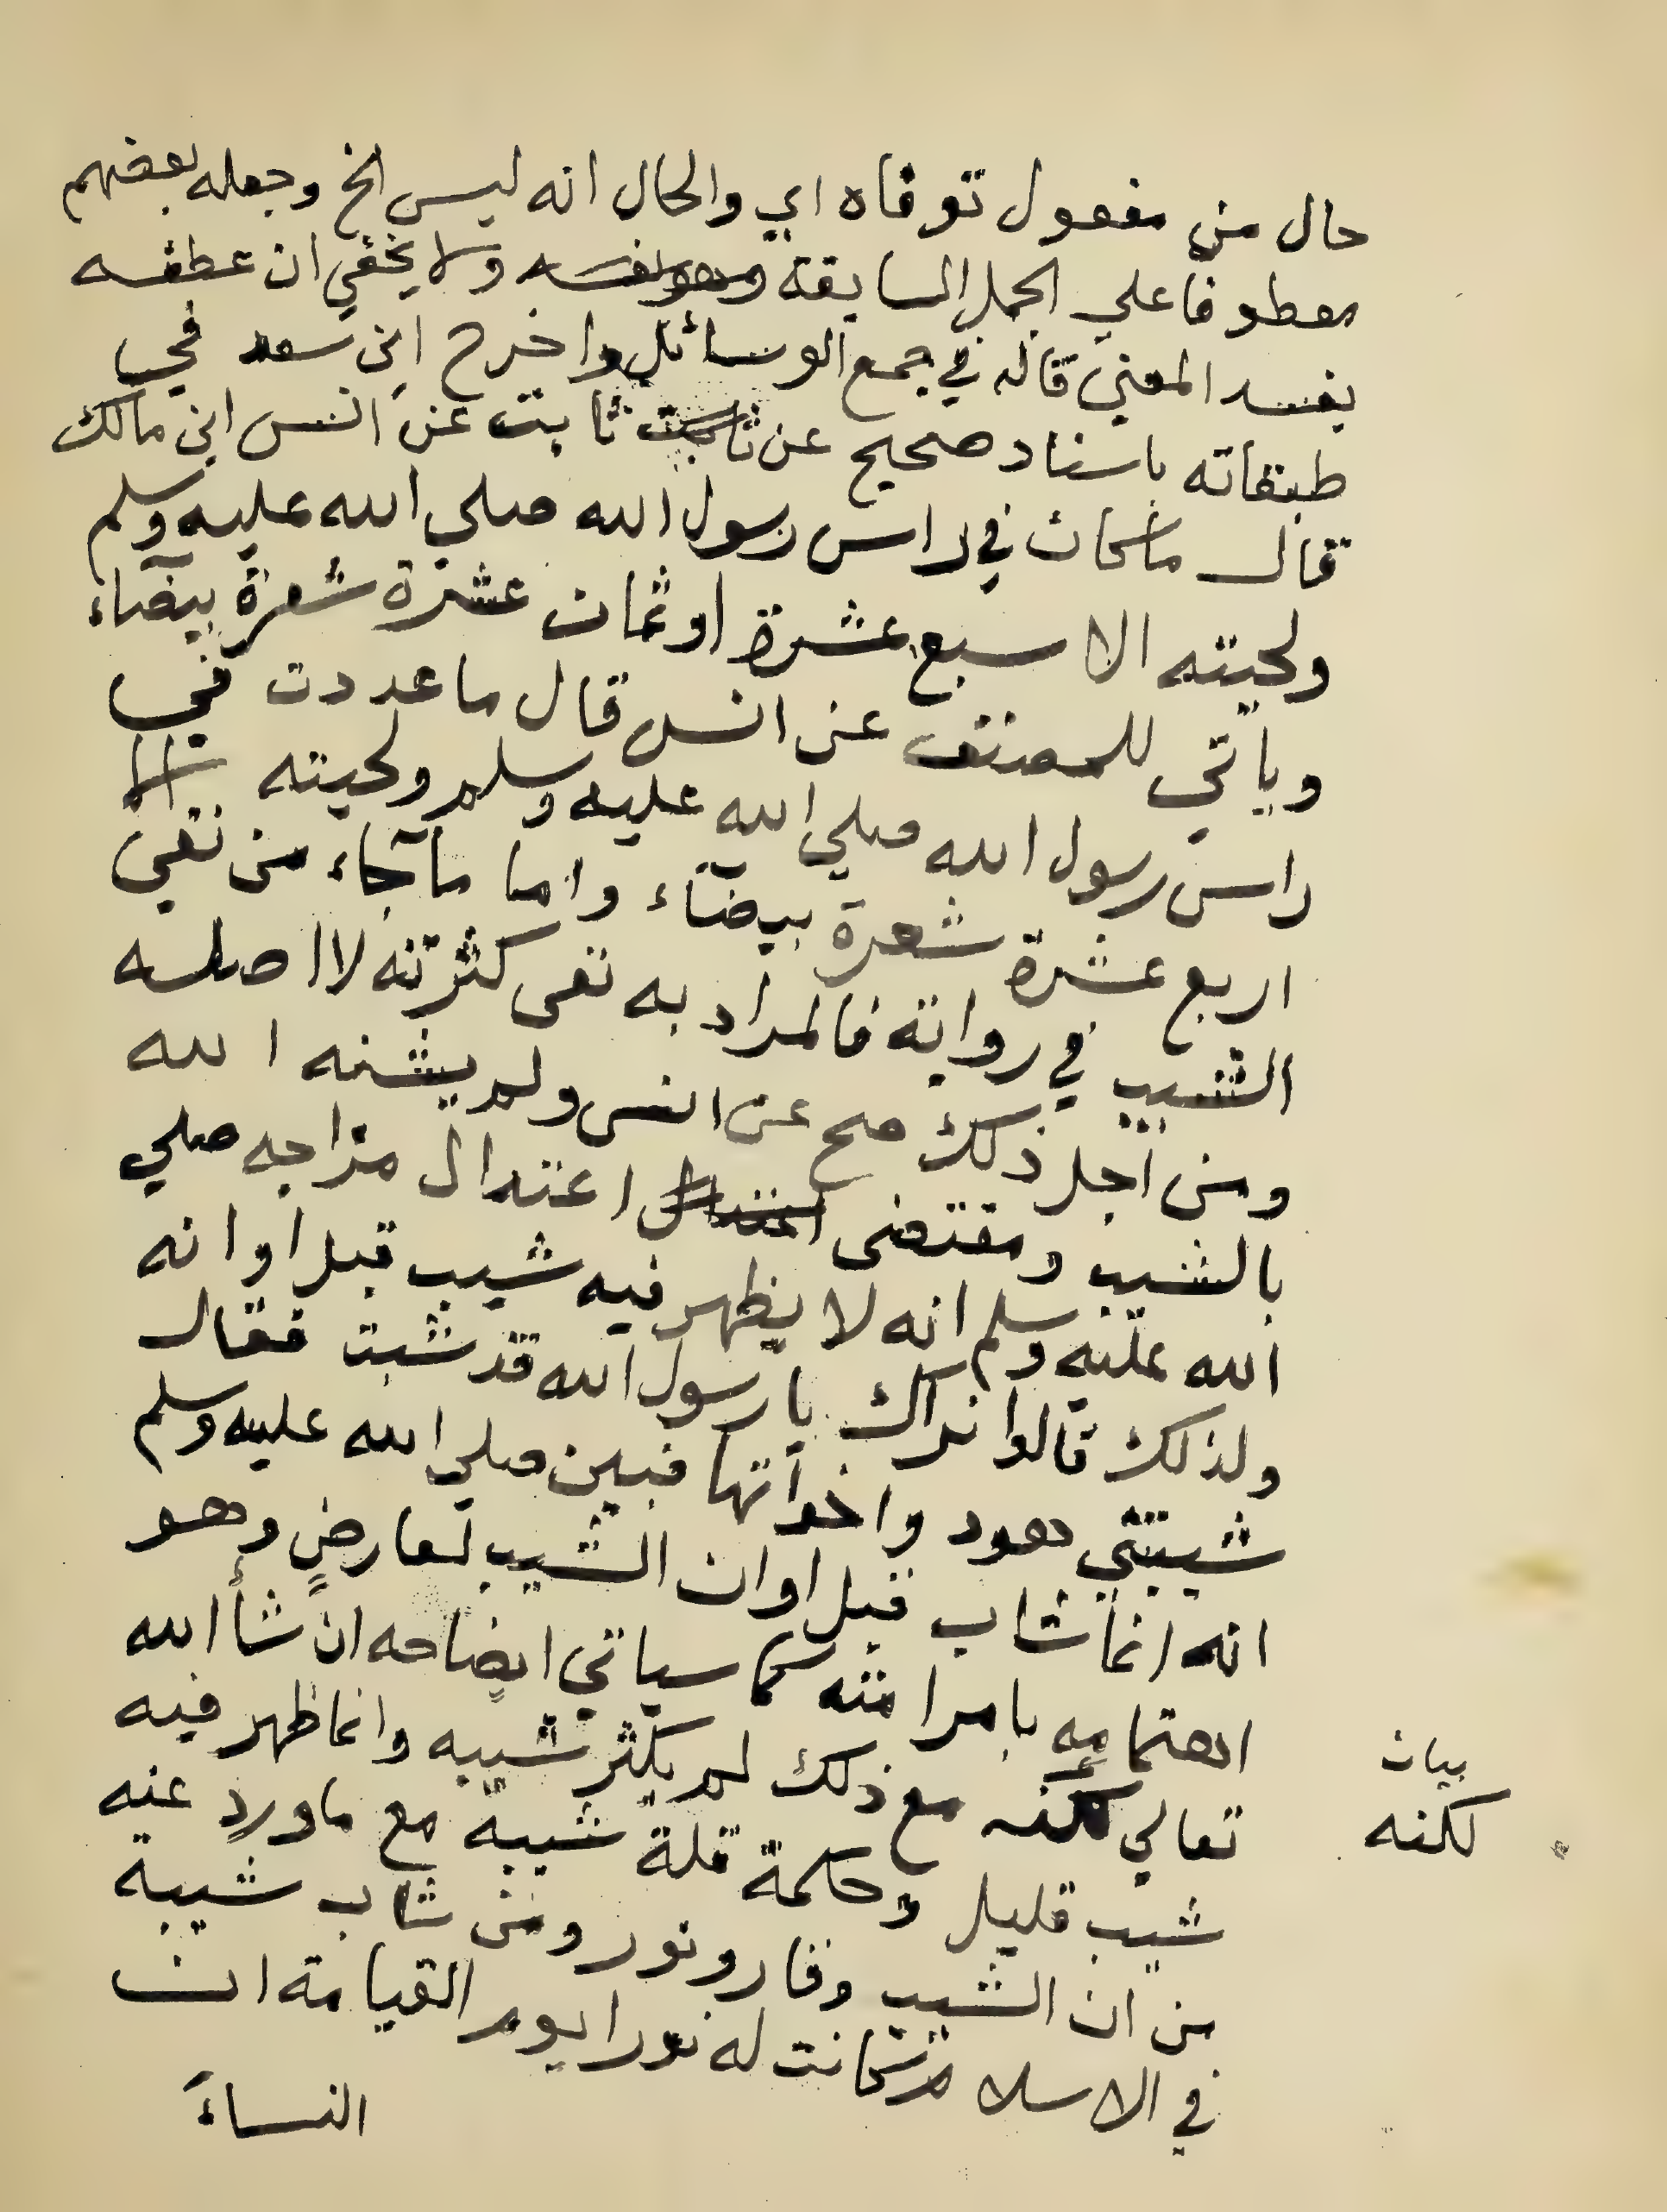 حال من مفعول توفاه اي والحال انه ليس الخ وجعله بعضهم
معطوفا علي الجمل السابقة ولا يخفي ان عطفه
يفسد المعني قاله في جمع الوسائل واخرج ابن سعد في
طبقاته باسناد صحيح عن ثابت عن انس ابن مالك
قال ماكان في راس رسول الله صلي الله عليه وسلم
ولحيته الا سبع عشرة او ثمان عشرة شعرة بيضاء
وياتي للمصنف عن انس قال ما عددت في
راس رسول الله صلي الله عليه وسلم ولحيته الا
اربع عشرة شعرة بيضاء واما ماجاء من نفي
الشيب في رواية فالمراد به نفي كثرته لا اصله
ومن اجل ذلك صح عن انس ولم يشنه الله
بالشيب ومقتضى اعتدال مزاجه صلي
الله عليه وسلم انه لا يظهر فيه شيب قبل اوانه
ولذلك قالوا نراك يا رسول الله قد شبت فقال
شيبتني هود واخواتها فبين صلي الله عليه وسلم
انه انما شاب قبل اوان الشيب لعارض وهو
اهتمامه بامر امته كما سياتي ايضاحه ان شأ الله
تعالي لكنه مع ذلك لم يكثر شيبه وانما ظهر فيه
بيان
لكنه
شيب قليل وحكمة قلة شيبه مع ماورد عنه
من ان الشيب وقار ونور ومن شاب شيبة
في الاسلام كانت له نورا يوم القيامة ان
النساء